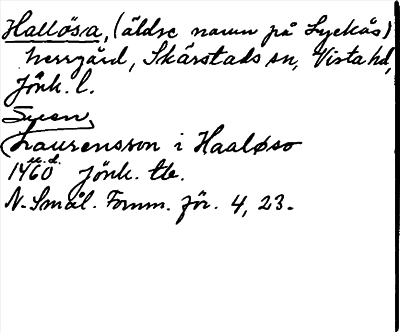 Hallösa, (äldre namn på Lyckås)
herrgård, Skärstads sn, Vista hd,
Jönk. l.
Swen
Laurensson i Haaløso
1460 u.d. Jönk. tb.
N. Smål. Fornm. för. 4, 23.